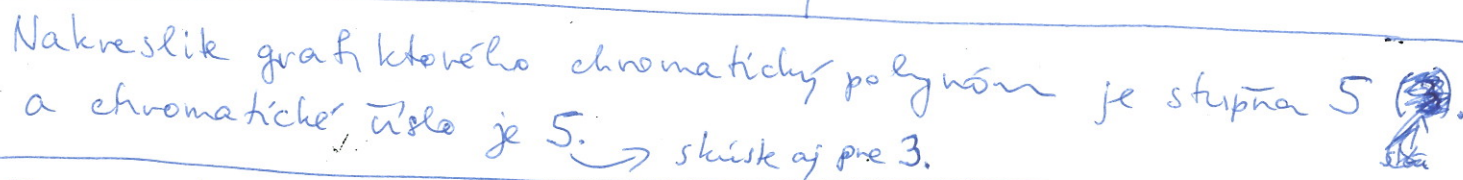 Nakreslite graf, ktorého chromatický polynóm je stupňa 5
a chromatické číslo je 5. → skúste aj pre 3.